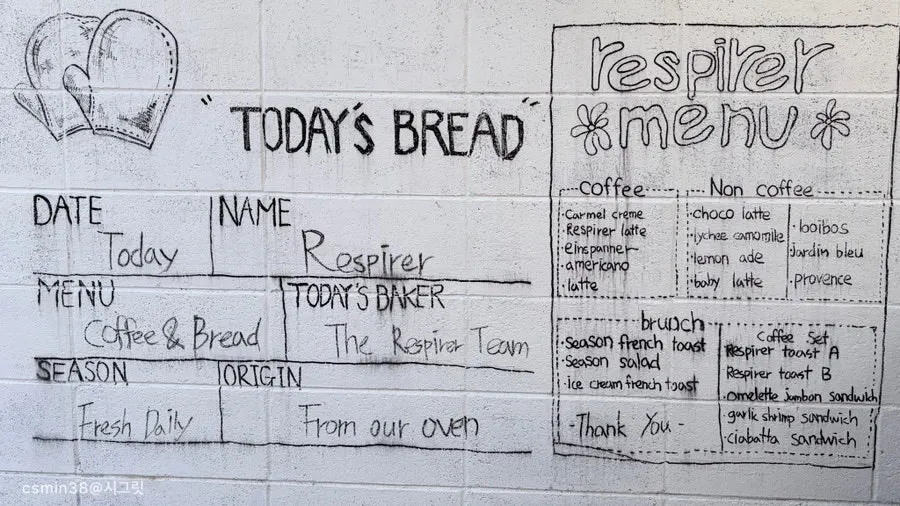 "TODAY'S BREAD"
DATE
Today
NAME
Respirer
MENU
Coffee & Bread
TODAY'S BAKER
The Respirer Team
SEASON
Fresh Daily
ORIGIN
From our oven
respirer
menu
coffee
·Carmel creme
·Respirer latte
·einspanner
·americano
·latte
Non coffee
·choco latte
·lychee camomile
·lemon ade
·baby latte
·looibos
·jardin bleu
·provence
brunch
·Season french toast
·Season salad
·ice cream french toast
-Thank You-
Coffee Set
Respirer toast A
Respirer toast B
·omelette jambon sandwich
·garlic shrimp sandwich
·ciabatta sandwich
csmin38@시그릿